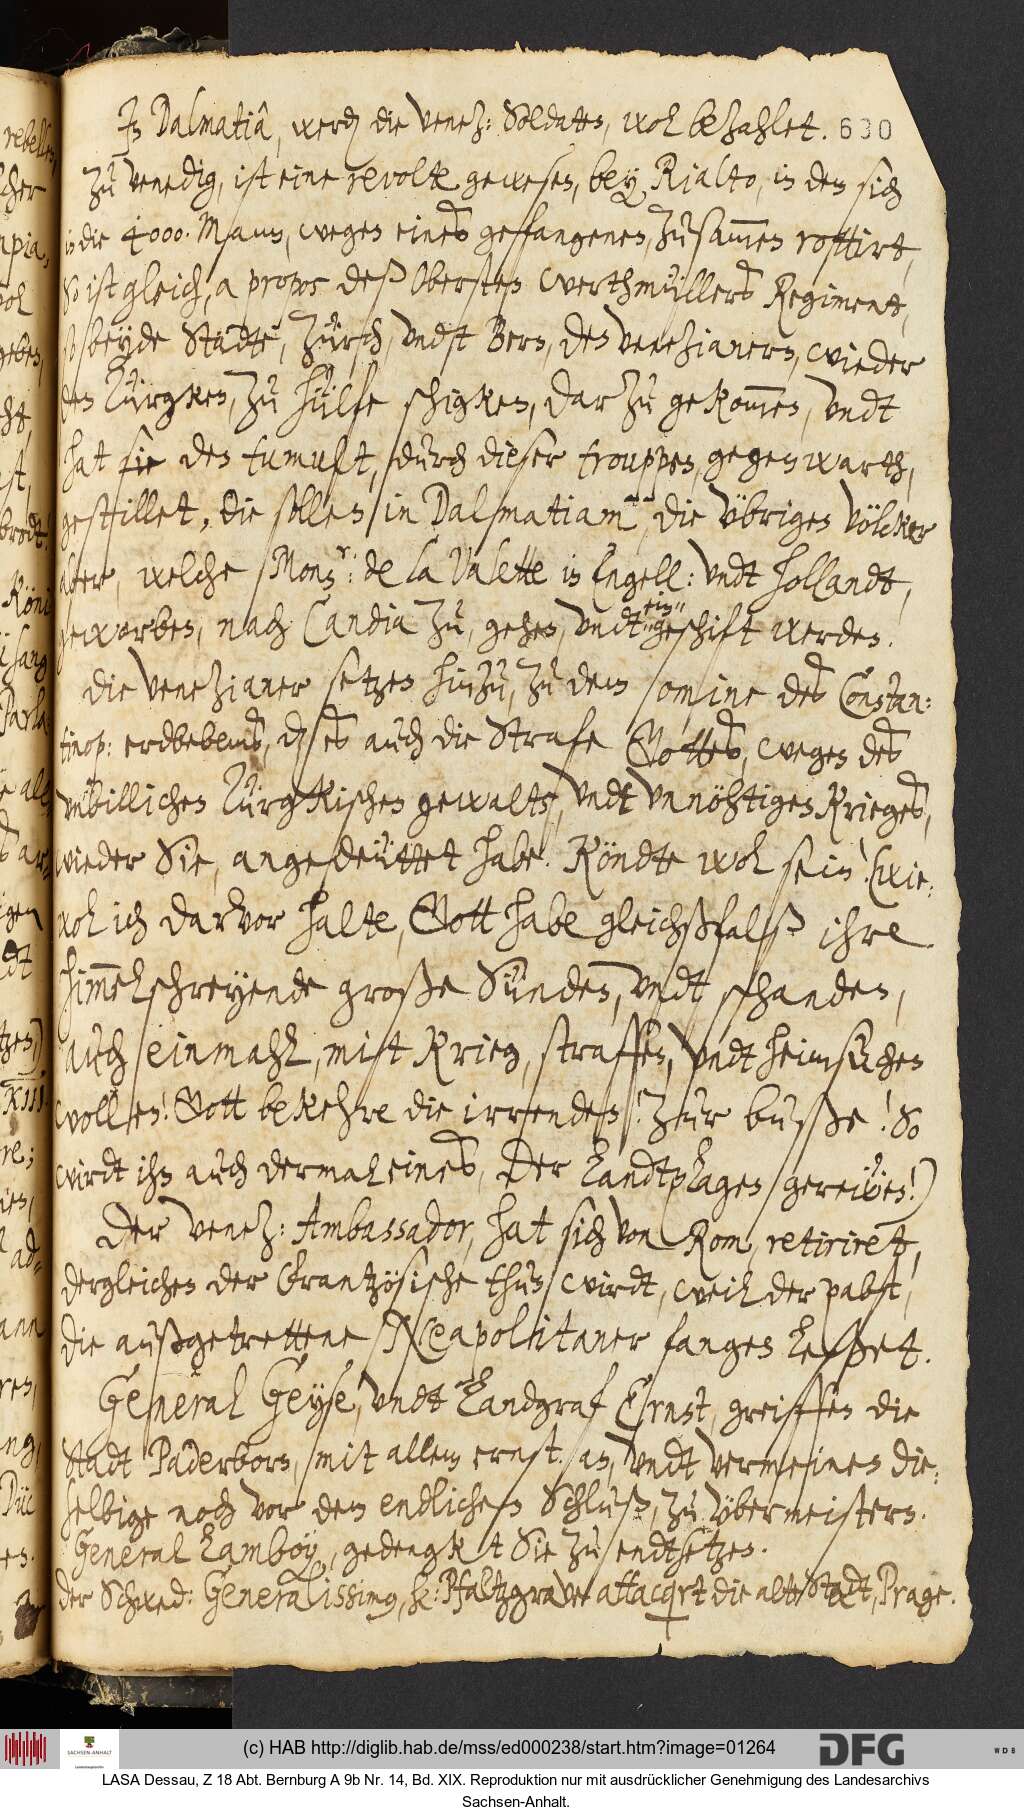 In Dalmatiâ, werden die Venez: Soldaten, wol bezahlet. 630
Zu Venedig, ist eine revolte gewesen, bey Rialto, in dem sich
in die 4000. Mann, wegen eines gefangenen, zusammen rottirt,
So ist gleich, a propos deß Obersten Werthmüllers Regiment,
so beyde Städte, Zürch, undt Bern, den Venezianern, wieder
den Türgken, zu hülfe schigken, darzu gekommen, undt
hat sie den tumult, durch dieser trouppen, gegenwarth,
gestillet, die sollen in Dalmatiam, die übrigen Völcker
aber, welche Monsr: de la Valette in Engell: undt Hollandt,
geworben, nach Candia zu, gehen, undt ein"
"geschift werden.
Die Venezianer setzen hinzu, zu dem omine des Constan:
tinop: erdbebens, daß es auch die Strafe Gottes, wegen des
unbillichen Türgkischen gewalts, undt unnöhtigen Krieges,
wieder Sie, angedeüttet habe. Köndte wol sein! (wie:
wol ich darvor halte, Gott habe gleichßfalß ihre
himmelschreyende große Sünden, undt schanden,
auch einmahl, mit Krieg, straffen, undt heimsuchen
wollen! Gott bekehre die irrenden! zur buße! So
wirdt ihn auch dermaleines, der Landtplagen gereüen!)
Der Venez: Ambassador, hat sich von Rom, retiriret,
dergleichen der Frantzösische thun wirdt, weil der pabst,
die außgetrettene Neapolitaner fangen leßet.
General Geyse, undt Landgraf Ernst, greiffen die
Stadt Paderborn, mit allem ernst an, undt vermeinen die:
selbige noch vor dem endlichen Schluß, zu übermeistern.
General Lamboy, gedengkt Sie zu endtsetzen.
der Schwed: Generalissimo, H: Pfaltzgrave attacqirt die alte Stadt, Prage.
(c) HAB http://diglib.hab.de/mss/ed000238/start.htm?image=01264
SACHSEN-ANHALT
DFG
WDB
LASA Dessau, Z 18 Abt. Bernburg A 9b Nr. 14, Bd. XIX. Reproduktion nur mit ausdrücklicher Genehmigung des Landesarchivs
Sachsen-Anhalt.